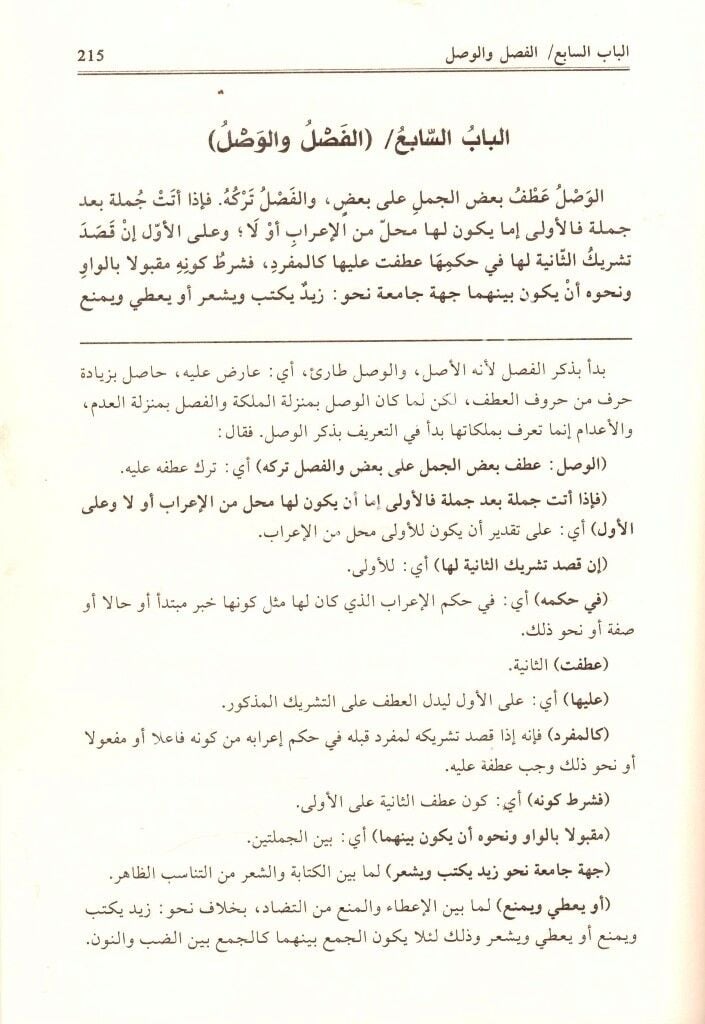 الباب السابع/ الفصل والوصل 215
البابُ السّابعُ/ (الفَصْلُ والوَصْلُ)
الوَصْلُ عَطْفُ بعض الجملِ على بعضٍ، والفَصْلُ تَرْكُهُ. فإذا أتَتْ جُملة بعد
جملة فالأولى إما يكون لها محلّ من الإعرابِ أوْ لَا؛ وعلى الأوّل إنْ قَصَدَ
تشريكُ الثّانية لها في حكمِهَا عطفت عليها كالمفردِ، فشرطُ كونِهِ مقبولا بالواوِ
ونحوه أنْ يكون بينهما جهة جامعة نحو: زيدٌ يكتب ويشعر أو يعطي ويمنع
بدأ بذكر الفصل لأنه الأصل، والوصل طارئ، أي: عارض عليه، حاصل بزيادة
حرف من حروف العطف، لكن لما كان الوصل بمنزلة الملكة والفصل بمنزلة العدم،
والأعدام إنما تعرف بملكاتها بدأ في التعريف بذكر الوصل. فقال:
(الوصل: عطف بعض الجمل على بعض والفصل تركه) أي: ترك عطفه عليه.
(فإذا أتت جملة بعد جملة فالأولى إما أن يكون لها محل من الإعراب أو لا وعلى
الأول) أي: على تقدير أن يكون للأولى محل من الإعراب.
(إن قصد تشريك الثانية لها) أي: للأولى.
(في حكمه) أي: في حكم الإعراب الذي كان لها مثل كونها خبر مبتدأ أو حالا أو
صفة أو نحو ذلك.
(عطفت) الثانية.
(عليها) أي: على الأول ليدل العطف على التشريك المذكور.
(كالمفرد) فإنه إذا قصد تشريكه لمفرد قبله في حكم إعرابه من كونه فاعلا أو مفعولا
أو نحو ذلك وجب عطفة عليه.
(فشرط كونه) أي: كون عطف الثانية على الأولى.
(مقبولا بالواو ونحوه أن يكون بينهما) أي: بين الجملتين.
(جهة جامعة نحو زيد يكتب ويشعر) لما بين الكتابة والشعر من التناسب الظاهر.
(أو يعطي ويمنع) لما بين الإعطاء والمنع من التضاد، بخلاف نحو: زيد يكتب
ويمنع أو يعطي ويشعر وذلك لئلا يكون الجمع بينهما كالجمع بين الضب والنون.